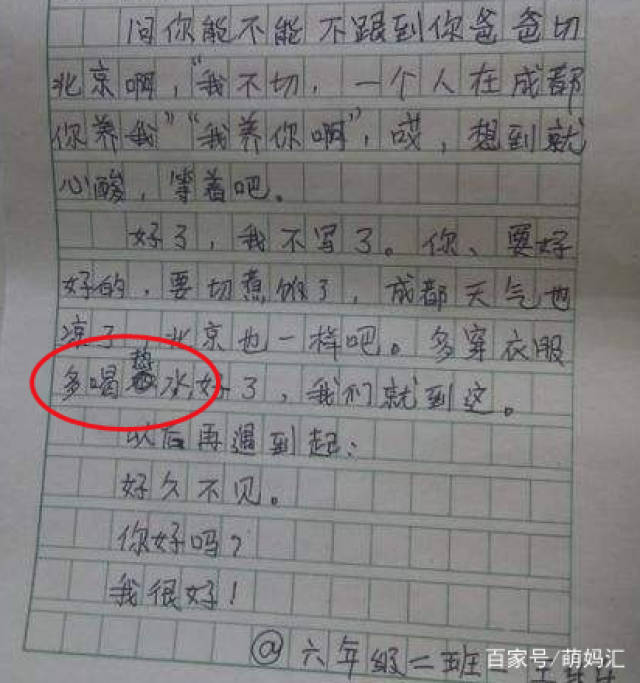 问你能不能不跟到你爸爸切
北京啊,“我不切,一个人在成都
你养我”“我养你啊”,哎,想到就
心酸,等着吧。
好了,我不写了。你、要好
好的,要切煮饭了,成都天气也
凉了,北京也一样吧。多穿衣服
多喝热水,好了,我们就到这。
以后再遇到起:
好久不见。
你好吗?
我很好!
@六年级二班
百家号/萌妈汇